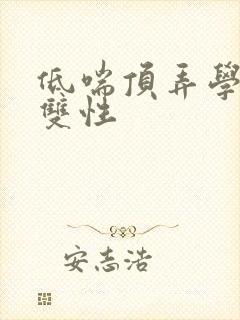 低喘頂弄學
雙性
安志浩